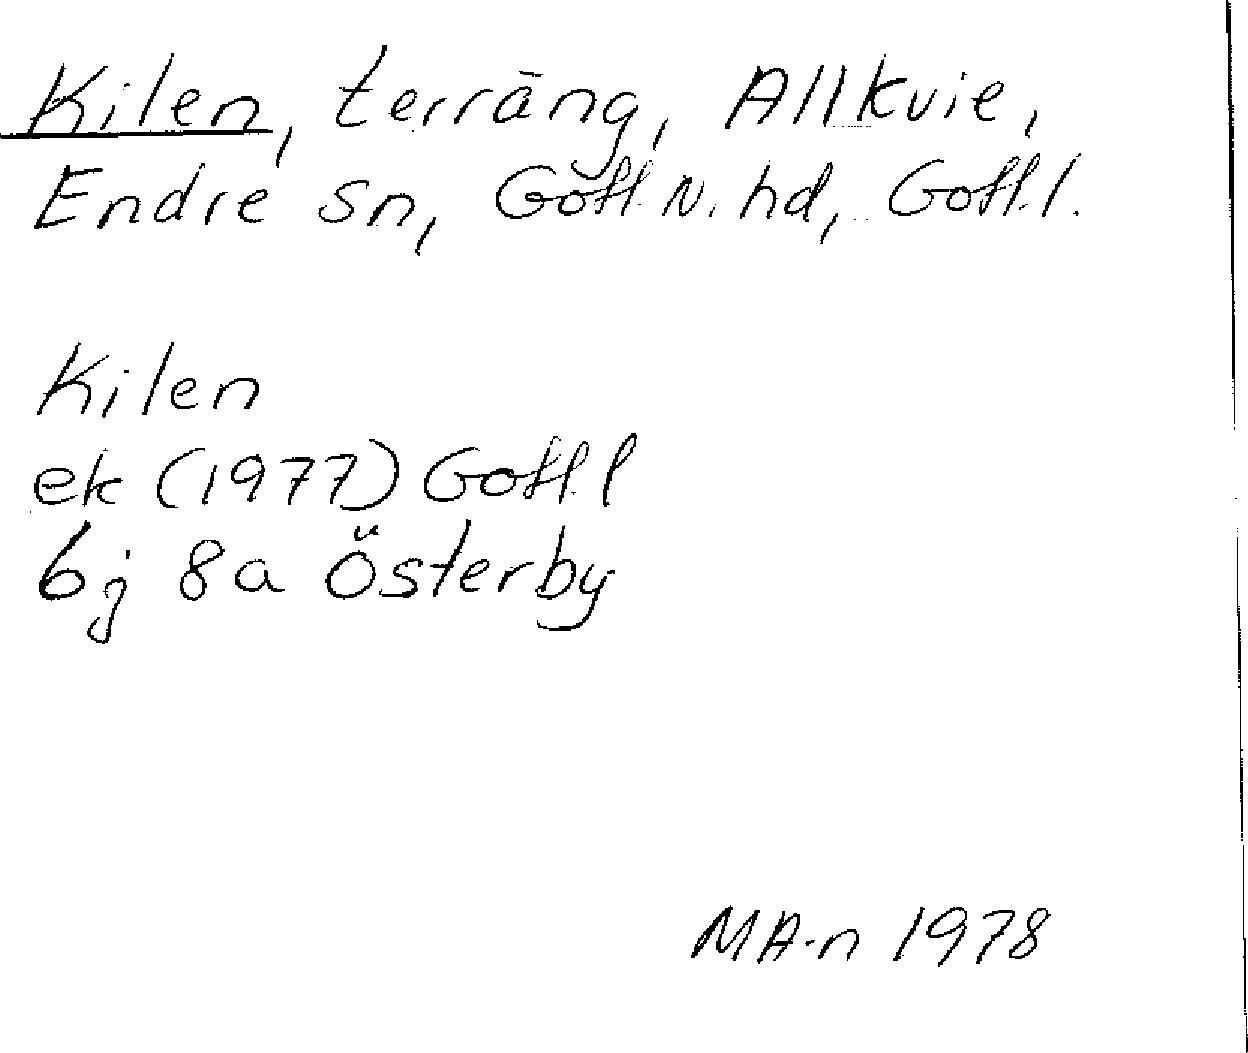 Kilen, terräng, Allkvie,
Endre sn, Gotl. N. hd, Gotl. l.
Kilen
ek (1977) Gotl. l
6j 8a Österby
MA-n 1978